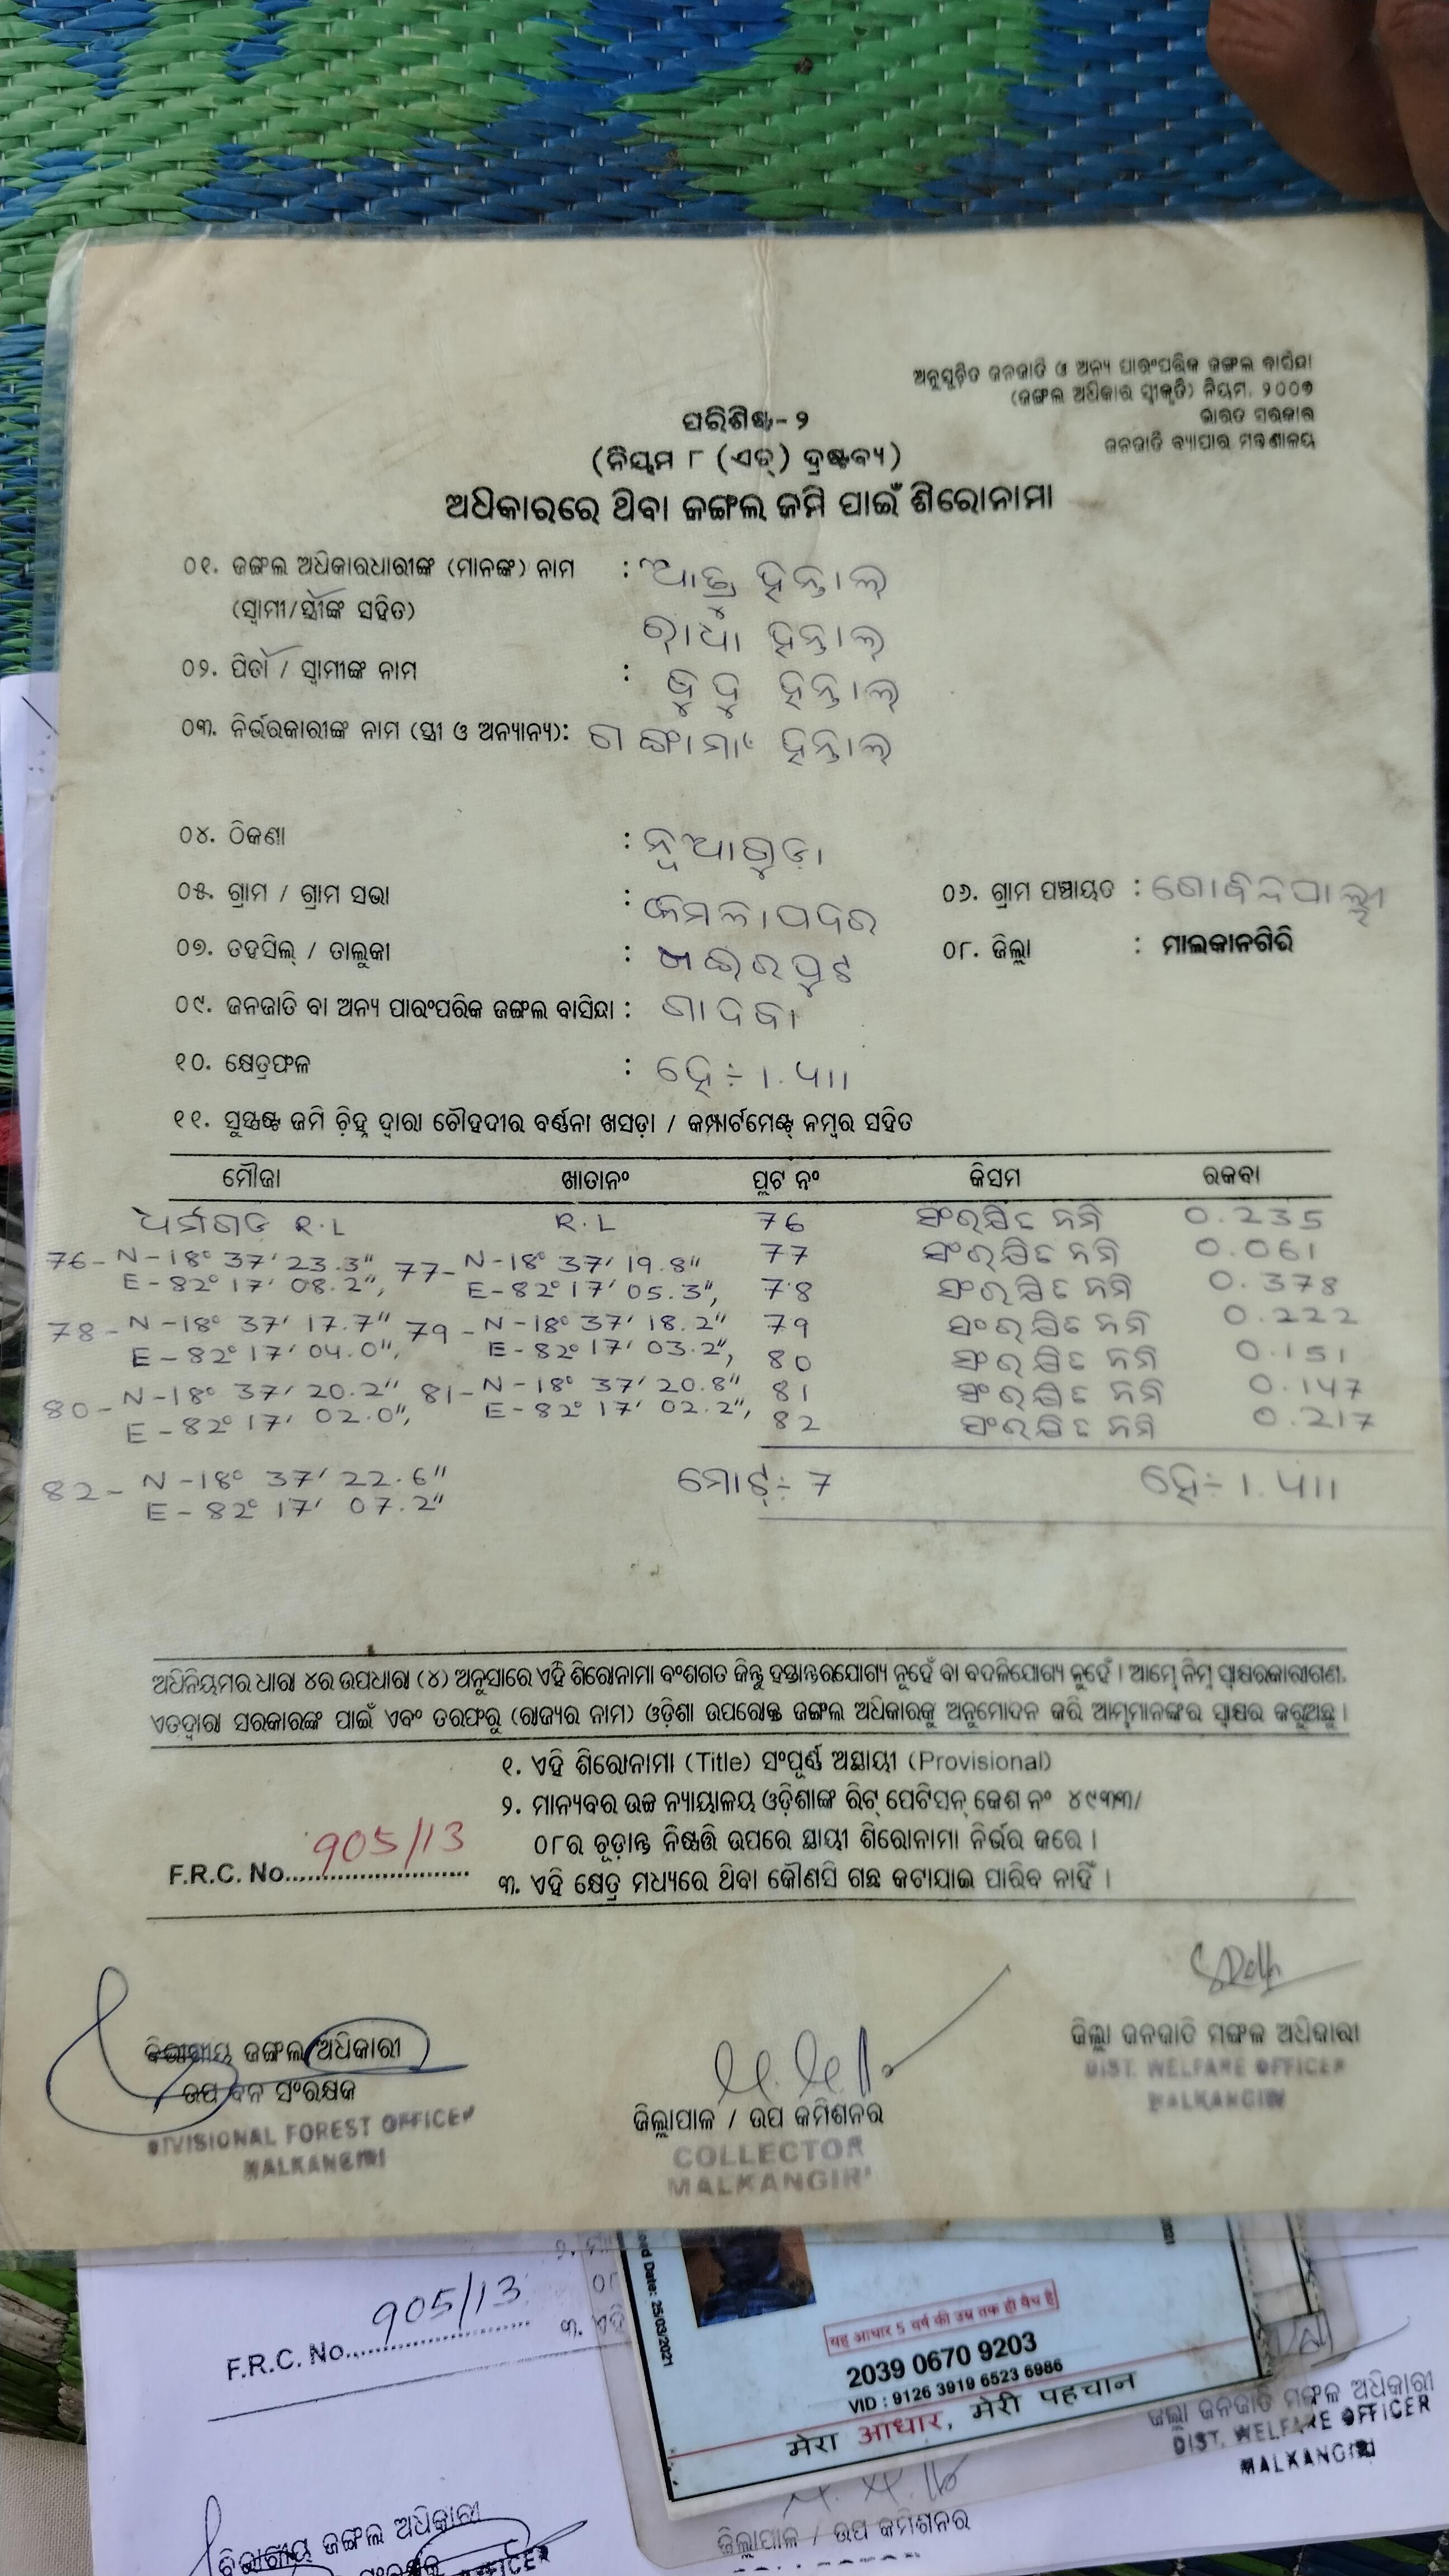 ଅନୁସୂଚିତ ଜନଜାତି ଓ ଅନ୍ୟ ପାରଂପରିକ ଜଙ୍ଗଲ ବାସିନ୍ଦା
(ଜଙ୍ଗଲ ଅଧିକାର ସ୍ୱୀକୃତି) ନିୟମ, ୨୦୦୭
ଭାରତ ସରକାର
ଜନଜାତି ବ୍ୟାପାର ମନ୍ତ୍ରଣାଳୟ
ପରିଶିଷ୍ଟ-୨
(ନିୟମ ୮ (ଏଚ୍) ଦ୍ରଷ୍ଟବ୍ୟ)
ଅଧିକାରରେ ଥିବା ଜଙ୍ଗଲ ଜମି ପାଇଁ ଶିରୋନାମା
୦୧. ଜଙ୍ଗଲ ଅଧିକାରଧାରୀଙ୍କ (ମାନଙ୍କ) ନାମ : ହନ୍ତାଲ୍
(ସ୍ୱାମୀ/ସ୍ତ୍ରୀଙ୍କ ସହିତ) ରାଧା ହନ୍ତାଲ୍
୦୨. ପିତା / ସ୍ୱାମୀଙ୍କ ନାମ : ହନ୍ତାଲ୍
୦୩. ନିର୍ଭରକାରୀଙ୍କ ନାମ (ସ୍ତ୍ରୀ ଓ ଅନ୍ୟାନ୍ୟ): ହନ୍ତାଲ୍
୦୪. ଠିକଣା : ନୂଆଗୁଡ଼ା
୦୫. ଗ୍ରାମ / ଗ୍ରାମ ସଭା : କମଳାପଦର ୦୬. ଗ୍ରାମ ପଞ୍ଚାୟତ : ଗୋବିନ୍ଦପାଲ୍ଲୀ
୦୭. ତହସିଲ୍ / ତାଲୁକା : ଖଇରପୁଟ ୦୮. ଜିଲ୍ଲା : ମାଲକାନଗିରି
୦୯. ଜନଜାତି ବା ଅନ୍ୟ ପାରଂପରିକ ଜଙ୍ଗଲ ବାସିନ୍ଦା : ଗାଦବା
୧୦. କ୍ଷେତ୍ରଫଳ : ହେ÷ ୧.୪୧୧
୧୧. ସୁସ୍ପଷ୍ଟ ଜମି ଚିହ୍ନ ଦ୍ୱାରା ଚୌହଦୀର ବର୍ଣ୍ଣନା ଖସଡ଼ା / କମ୍ପାର୍ଟମେଣ୍ଟ୍ ନମ୍ବର ସହିତ
ମୌଜା ଖାତାନଂ ପ୍ଲଟ ନଂ କିସମ ରକବା
ଧର୍ମଗଡ R.L R.L 76 ସଂରକ୍ଷିତ ଜମି 0.235
76- N-18° 37' 23.3" 77- N-18° 37' 19.8" 77 ସଂରକ୍ଷିତ ଜମି 0.061
E-82° 17' 08.2", E-82° 17' 05.3", 78 ସଂରକ୍ଷିତ ଜମି 0.378
78- N-18° 37' 17.7" 79- N-18° 37' 18.2" 79 ସଂରକ୍ଷିତ ଜମି 0.222
E-82° 17' 04.0", E-82° 17' 03.2", 80 ସଂରକ୍ଷିତ ଜମି 0.151
80- N-18° 37' 20.2" 81- N-18° 37' 20.8" 81 ସଂରକ୍ଷିତ ଜମି 0.147
E-82° 17' 02.0", E-82° 17' 02.2", 82 ସଂରକ୍ଷିତ ଜମି 0.217
82- N-18° 37' 22.6" ମୋଟ୍÷ 7 ହେ÷ ୧.୪୧୧
E-82° 17' 07.2"
ଅଧିନିୟମର ଧାରା ୪ର ଉପଧାରା (୪) ଅନୁସାରେ ଏହି ଶିରୋନାମା ବଂଶଗତ କିନ୍ତୁ ହସ୍ତାନ୍ତରଯୋଗ୍ୟ ନୁହେଁ ବା ବଦଳିଯୋଗ୍ୟ ନୁହେଁ । ଆମ୍ଭେ ନିମ୍ନ ସ୍ୱାକ୍ଷରକାରୀଗଣ,
ଏତଦ୍ୱାରା ସରକାରଙ୍କ ପାଇଁ ଏବଂ ତରଫରୁ (ରାଜ୍ୟର ନାମ) ଓଡ଼ିଶା ଉପରୋକ୍ତ ଜଙ୍ଗଲ ଅଧିକାରକୁ ଅନୁମୋଦନ କରି ଆମ୍ଭମାନଙ୍କର ସ୍ୱାକ୍ଷର କରୁଅଛୁ ।
୧. ଏହି ଶିରୋନାମା (Title) ସଂପୂର୍ଣ୍ଣ ଅସ୍ଥାୟୀ (Provisional)
୨. ମାନ୍ୟବର ଉଚ୍ଚ ନ୍ୟାୟାଳୟ ଓଡ଼ିଶାଙ୍କ ରିଟ୍ ପେଟିସନ୍ କେଶ ନଂ ୪୯୩୩/
୦୮ର ଚୂଡ଼ାନ୍ତ ନିଷ୍ପତ୍ତି ଉପରେ ସ୍ଥାୟୀ ଶିରୋନାମା ନିର୍ଭର କରେ ।
F.R.C. No. 905/13 ୩. ଏହି କ୍ଷେତ୍ର ମଧ୍ୟରେ ଥିବା କୌଣସି ଗଛ କଟାଯାଇ ପାରିବ ନାହିଁ ।
ବିଭାଗୀୟ ଜଙ୍ଗଲ ଅଧିକାରୀ
ଉପ ବନ ସଂରକ୍ଷକ
DIVISIONAL FOREST OFFICER
MALKANGIRI
ଜିଲ୍ଲାପାଳ / ଉପ କମିଶନର
COLLECTOR
MALKANGIRI
ଜିଲ୍ଲା ଜନଜାତି ମଙ୍ଗଳ ଅଧିକାରୀ
DIST. WELFARE OFFICER
MALKANGIRI
F.R.C. No. 905/13
୩. ଏହି
Date: 25/03/2021
यह आधार 5 वर्ष की उम्र तक ही वैध है
2039 0670 9203
VID : 9126 3919 6523 6986
मेरा आधार, मेरी पहचान
ଜିଲ୍ଲା ଜନଜାତି ମଙ୍ଗଳ ଅଧିକାରୀ
DIST. WELFARE OFFICER
MALKANGIRI
ବିଭାଗୀୟ ଜଙ୍ଗଲ ଅଧିକାରୀ
ଜିଲ୍ଲାପାଳ / ଉପ କମିଶନର